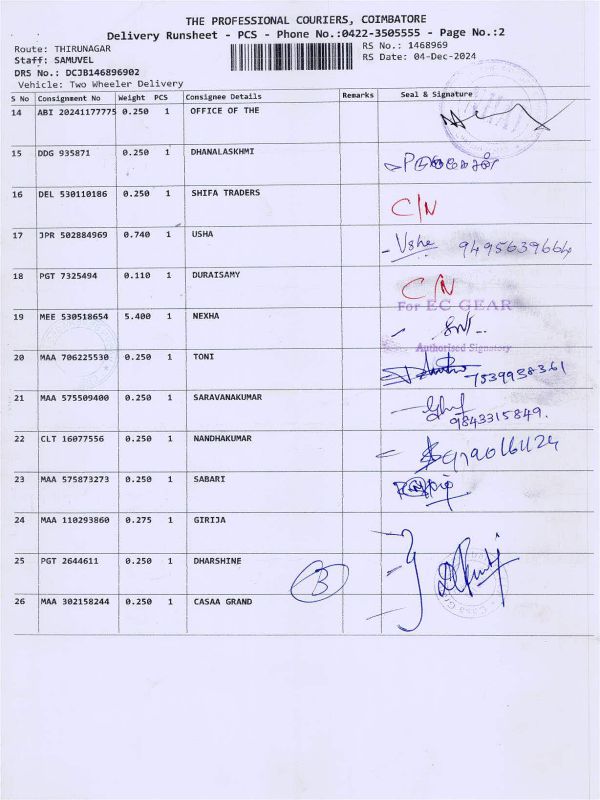 THE PROFESSIONAL COURIERS, COIMBATORE
Delivery Runsheet - PCS - Phone No.:0422-3505555 - Page No.:2
Route: THIRUNAGAR RS No.: 1468969
Staff: SAMUVEL RS Date: 04-Dec-2024
DRS No.: DCJB146896902
Vehicle: Two Wheeler Delivery
S No Consignment No Weight PCS Consignee Details Remarks Seal & Signature
14 ABI 20241177775 0.250 1 OFFICE OF THE
15 DDG 935871 0.250 1 DHANALASKHMI
16 DEL 530110186 0.250 1 SHIFA TRADERS C/N
17 JPR 502884969 0.740 1 USHA Usha 9495639664
18 PGT 7325494 0.110 1 DURAISAMY C/N
For EC GEAR
19 MEE 530518654 5.400 1 NEXHA
Authorised Signatory
20 MAA 706225530 0.250 1 TONI 7539938361
21 MAA 575509400 0.250 1 SARAVANAKUMAR 9843315849.
22 CLT 16077556 0.250 1 NANDHAKUMAR
23 MAA 575873273 0.250 1 SABARI
24 MAA 110293860 0.275 1 GIRIJA
25 PGT 2644611 0.250 1 DHARSHINE B
26 MAA 302158244 0.250 1 CASAA GRAND